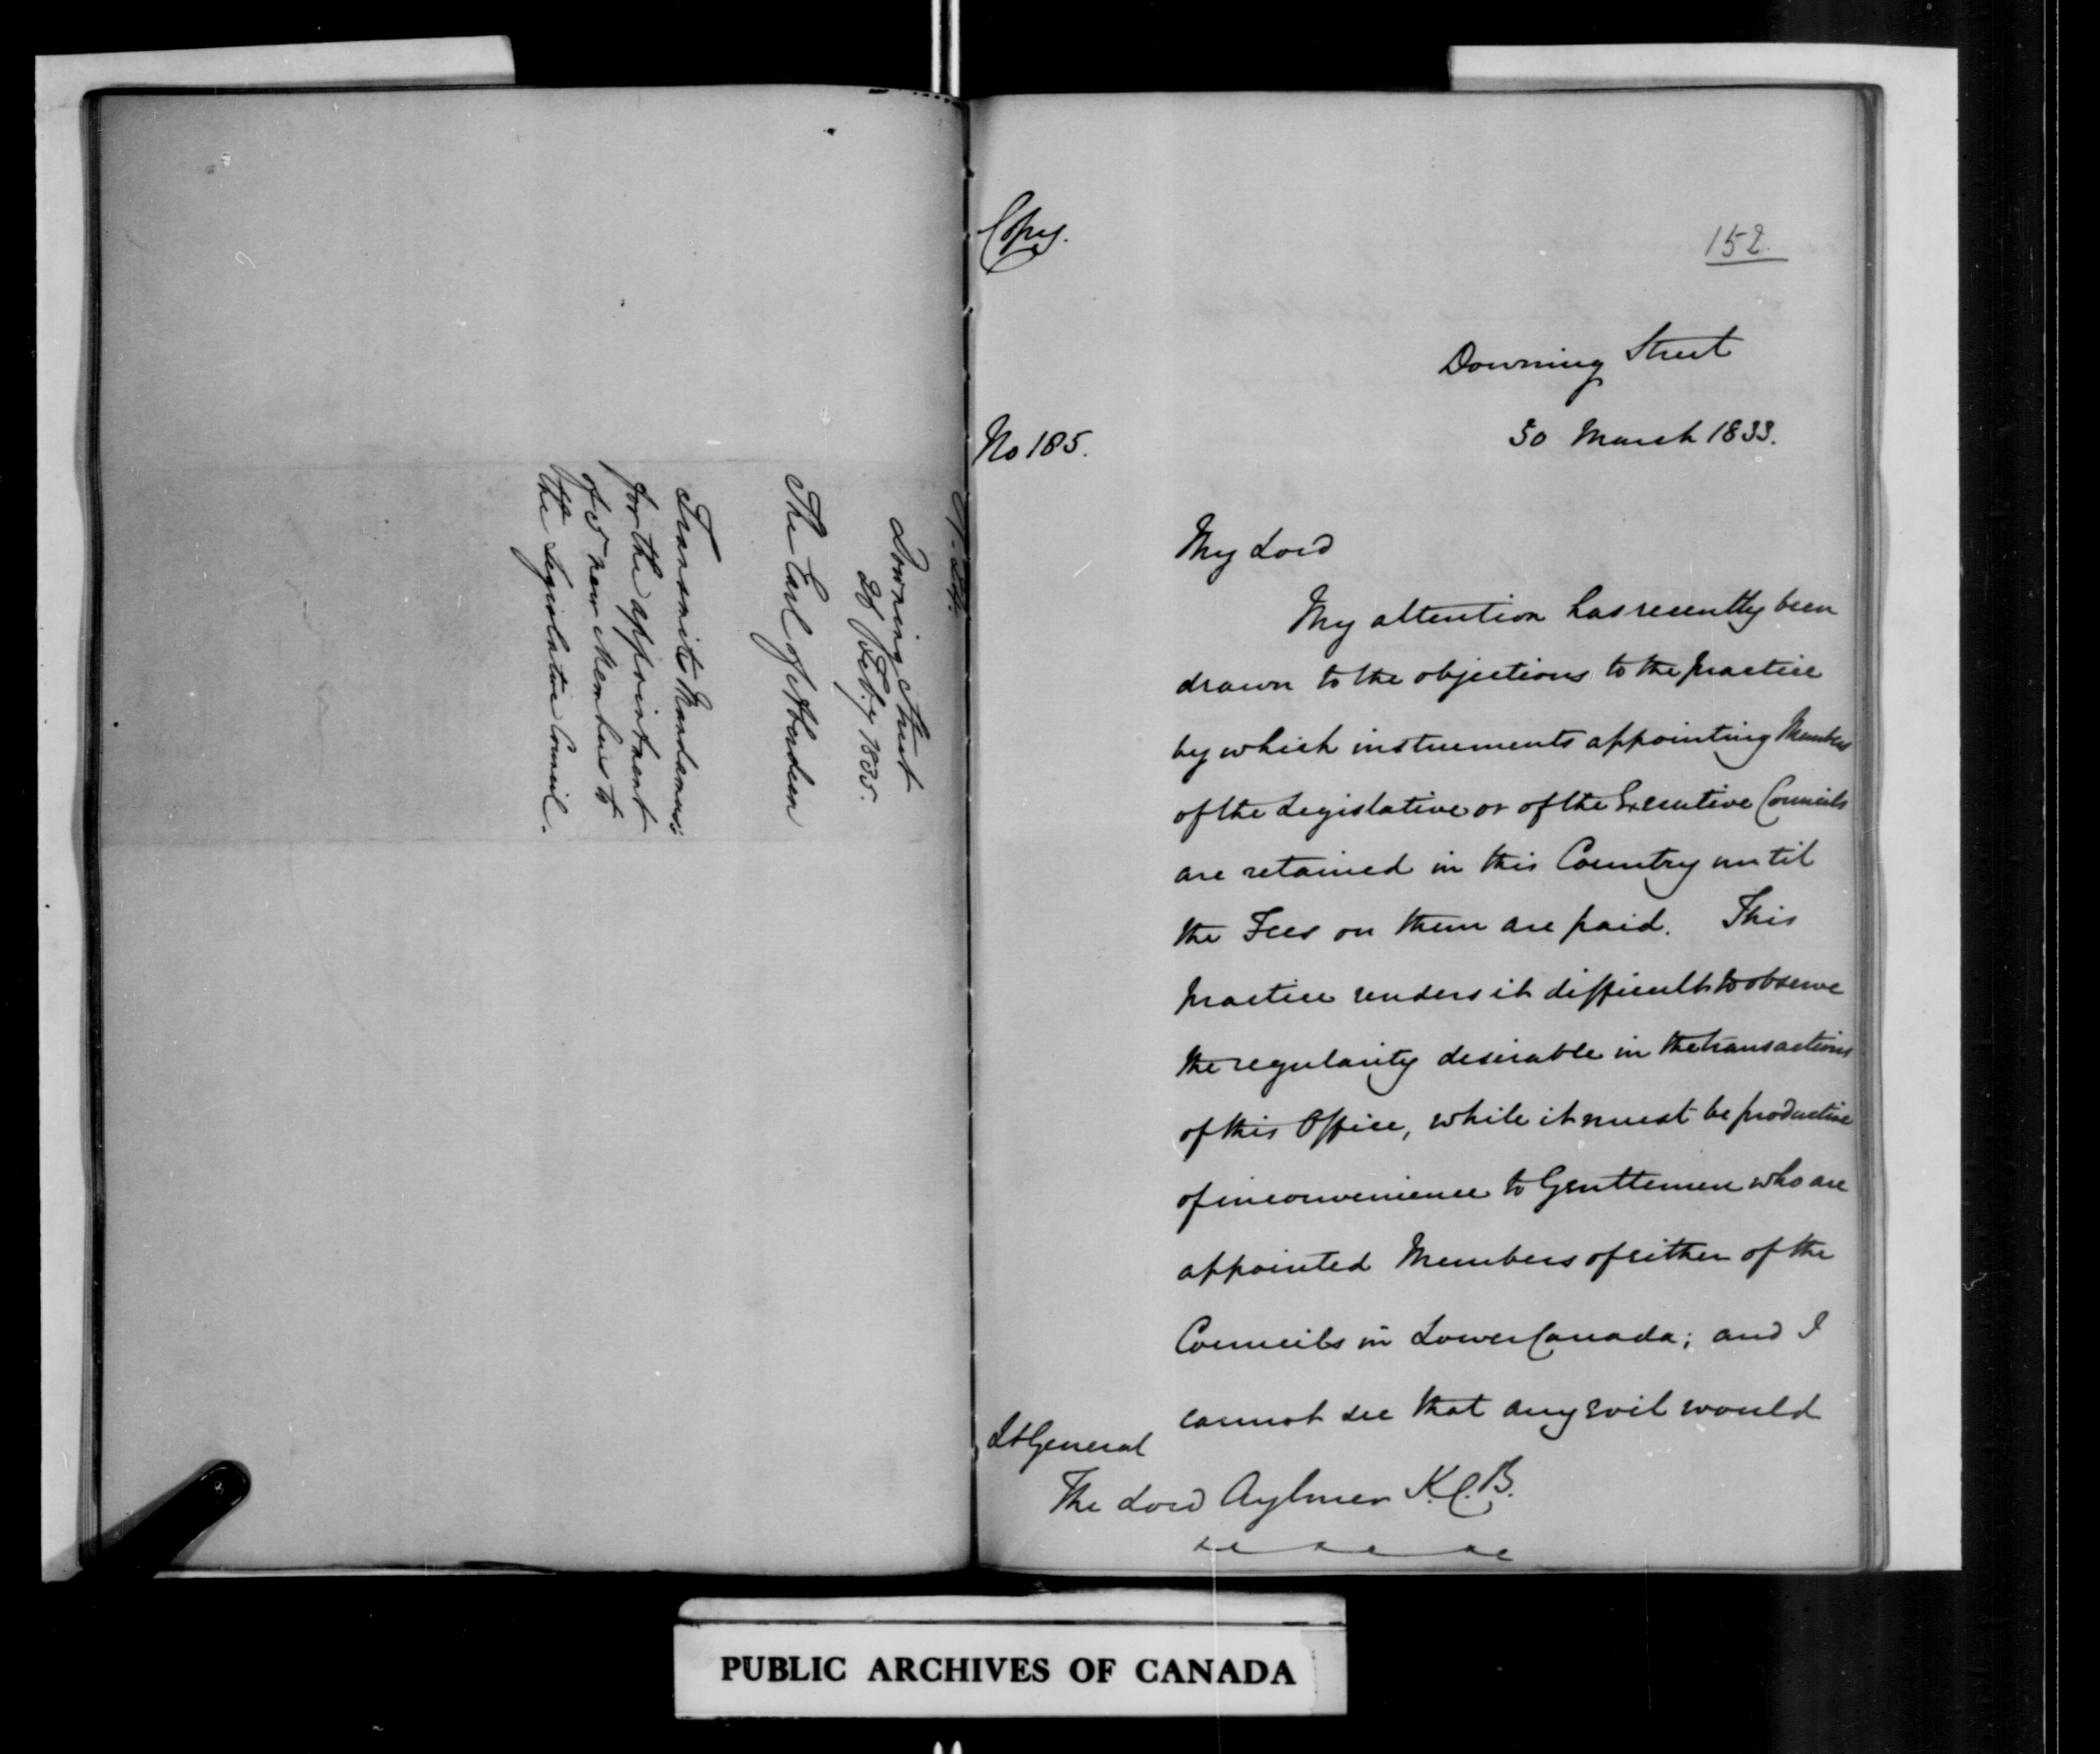 Downing Street
26 Feby 1835.
The Earl of Aberdeen
Transmits Mandamus
for the appointment
of 5 new Members to
the Legislative Council.
Copy.
152
Downing Street
No 185.
30 March 1833.
My Lord
My attention has recently been
drawn to the objections to the practice
by which instruments appointing Members
of the Legislative or of the Executive Councils
are retained in this Country until
the Fees on them are paid. This
practice renders it difficult to observe
the regularity desirable in the transactions
of this Office, while it must be productive
of inconvenience to Gentlemen who are
appointed Members of either of the
Councils in Lower Canada; and I
cannot see that any evil would
Lt General
The Lord Aylmer K.C.B.
PUBLIC ARCHIVES OF CANADA